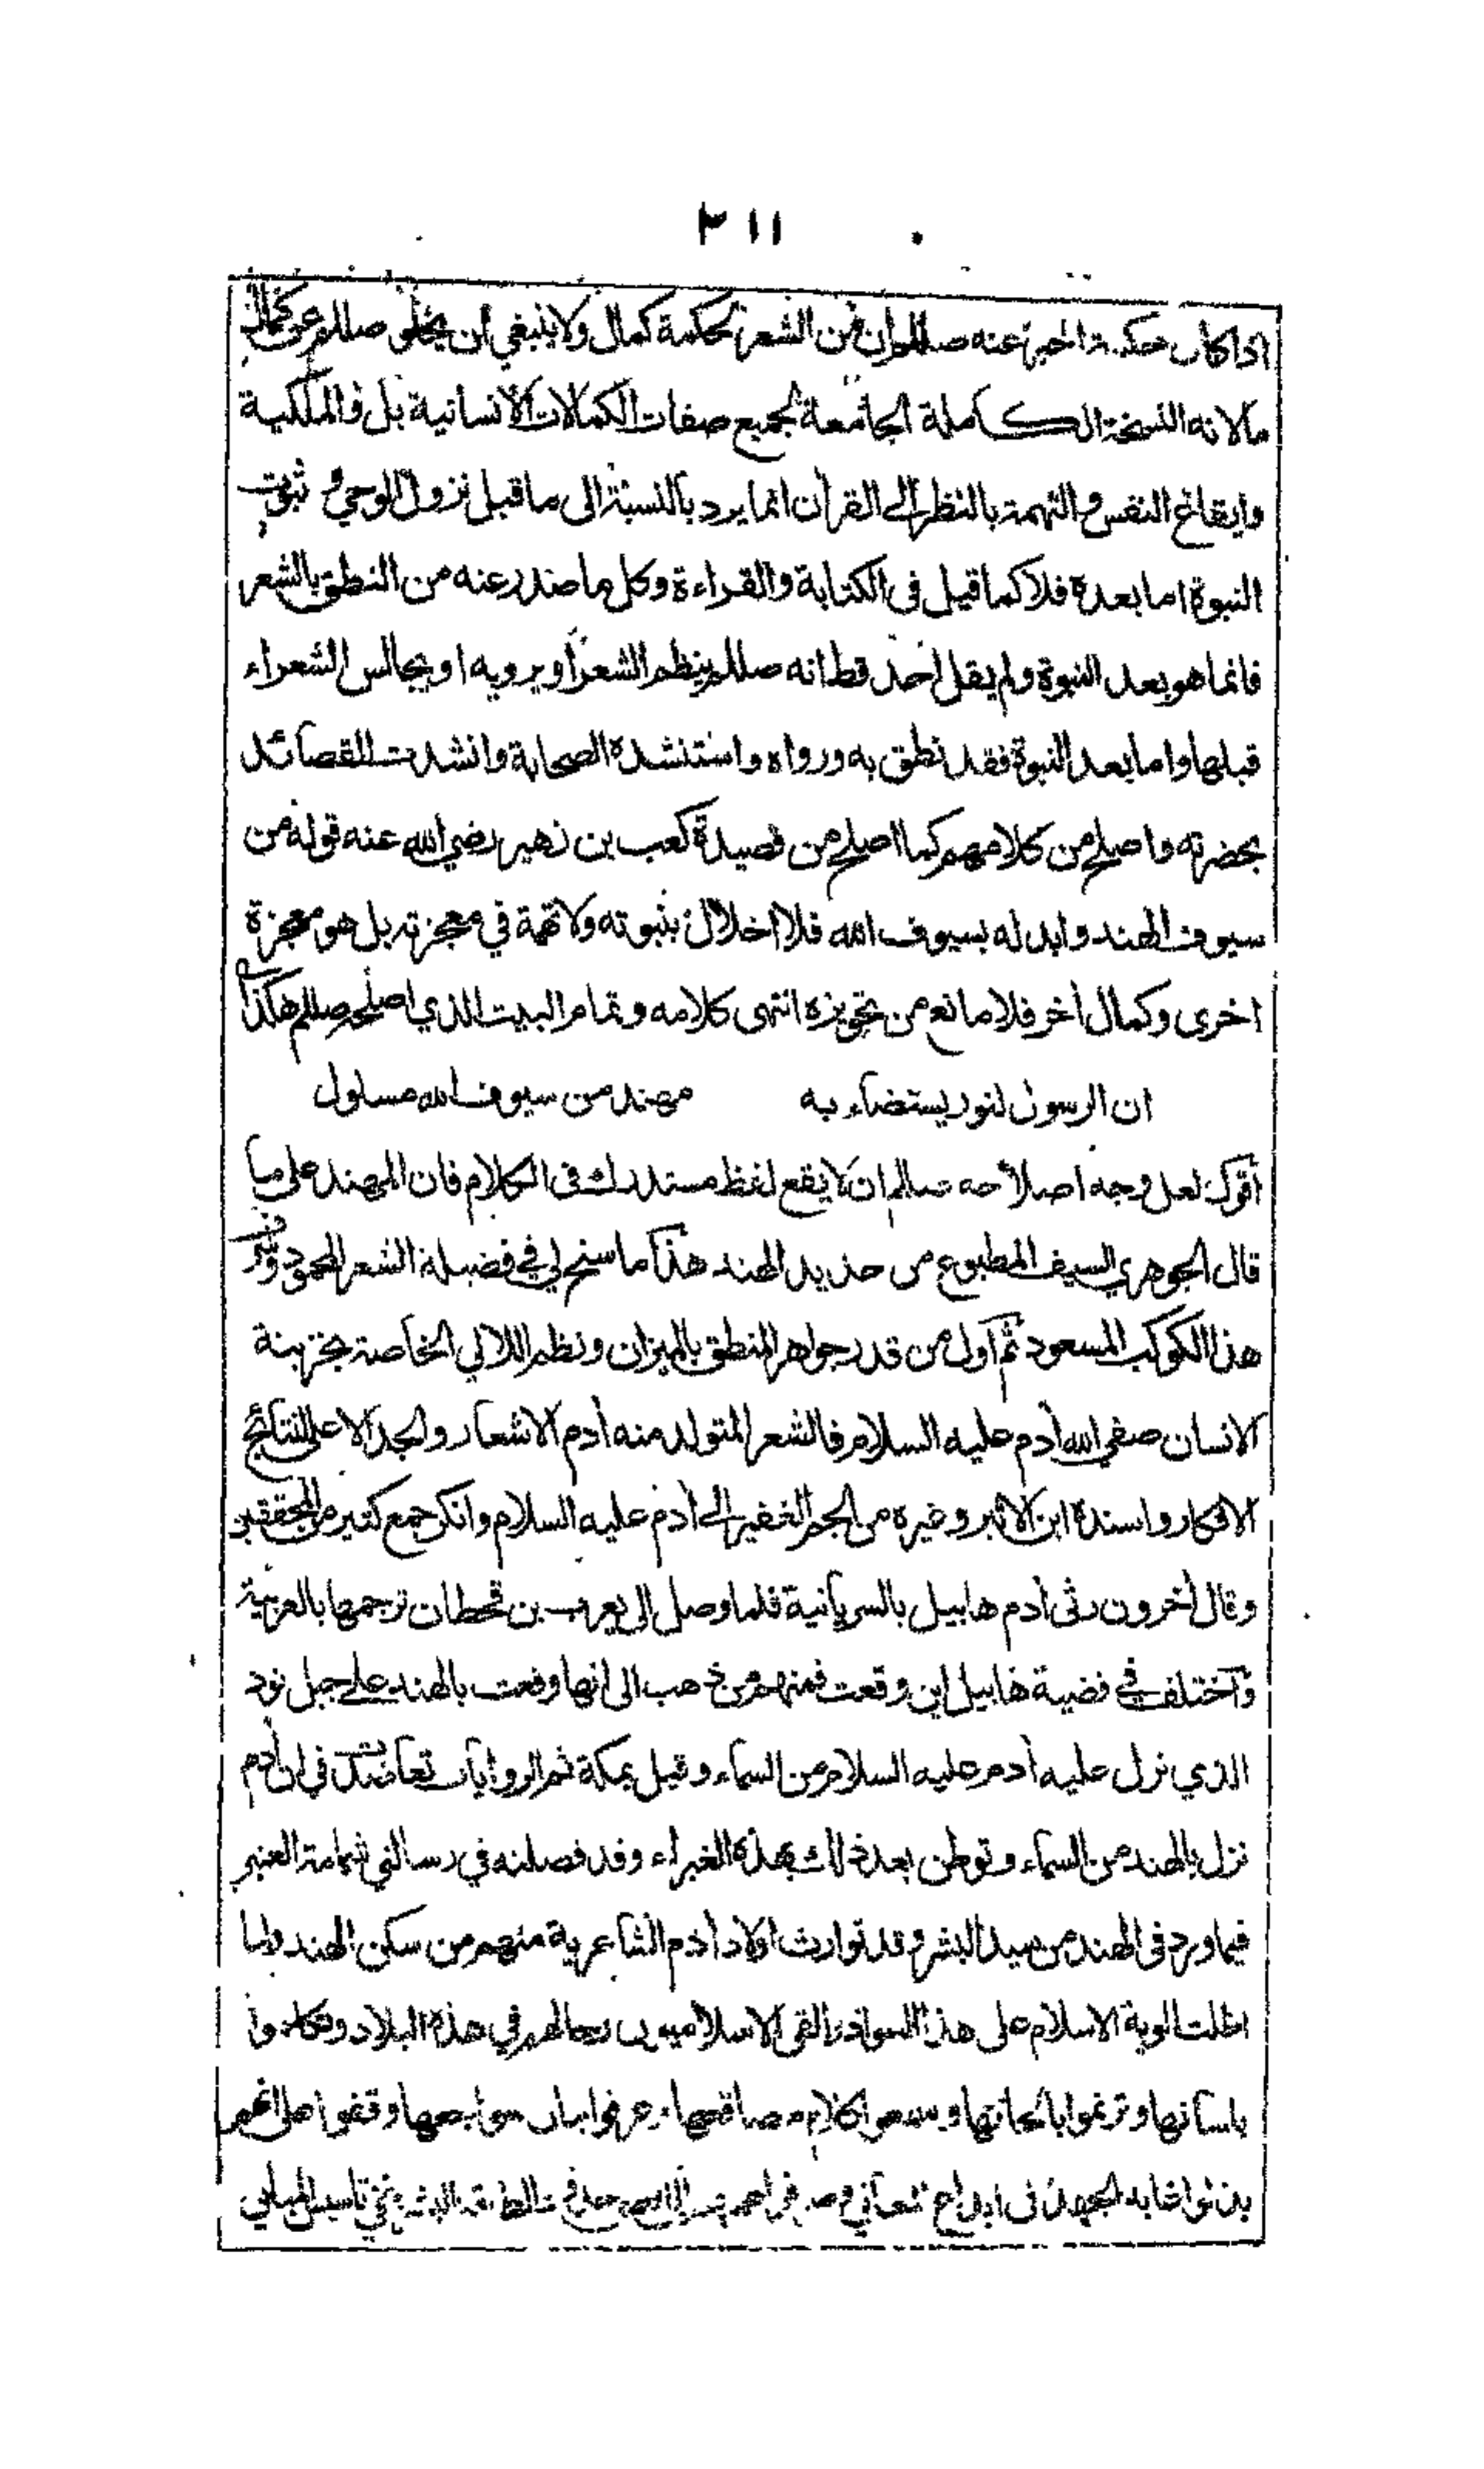 ٣١١
اذا كان حكمة لما اخبر عنه صللم ان من الشعر لحكمة كمال ولا ينبغي ان يخلو صللم عن كمال
ما لانه النسخة الكاملة الجامعة لجميع صفات الكمالات الانسانية بل والملكية
وايقاع النفس والتهمة بالنظر الى القرآن انما يرد بالنسبة الى ما قبل نزول الوحي و ثبوت
النبوة اما بعده فلا كما قيل فى الكتابة والقراءة وكل ما صدر عنه من النطق بالشعر
فانما هو بعد النبوة ولم يقل احد قط انه صللم ينظم الشعر او يرويه او يجالس الشعراء
قبلها واما بعد النبوة فقد نطق به ورواه واستنشده الصحابة وانشدت القصائد
بحضرته واصلح من كلامهم كما اصلح من قصيدة كعب بن زهير رضي الله عنه قوله من
سيوف الهند وابدله بسيوف الله فلا اخلال بنبوته ولا تهمة في معجزته بل هو معجزة
اخرى وكمال أخر فلا مانع من تجويزه انتهى كلامه وتمام البيت الذي اصلحه صللم هكذا
ان الرسول لنور يستضاء به مهند من سيوف الله مسلول
أقول لعل وجه اصلاحه صللم ان لا يقع لفظ مستدرك فى الكلام فان المهند على ما
قال الجوهري السيف المطبوع من حديد الهند هذا ما سنح لي في فضيلة الشعر المحمود
هذا الكوكب المسعود ثم اول من قدر جواهر المنطق بالميزان ونظم اللالي الخاصة بخزينة
الانسان صفي الله أدم عليه السلام فالشعر المتولد منه أدم الاشعار والجد الاعلى لنتائج
الافكار واسنده ابن الاثير وغيره من الجم الغفير الى أدم عليه السلام وانكر جمع كثير من المحققين
وقال أخرون رثى أدم هابيل بالسريانية فلما وصل الى يعرب بن قحطان ترجمها بالعربية
واختلف في قضية هابيل اين وقعت فمنهم من ذهب الى انها وقعت بالهند على جبل نود
الذي نزل عليه أدم عليه السلام من السماء وقيل بمكة ثم الروايات تعاضدت في ان أدم
نزل بالهند من السماء وتوطن بعد ذلك بهذه الغبراء وقد فصلته في رسالتي شمامة العنبر
فيما ورد فى الهند من سيد البشر وقد توارث اولاد أدم الشاعرية منهم من سكن الهند ولما
اظلت الوية الاسلام على هذا السواد والقى الاسلاميون رحالهم في هذه البلاد وتكلموا
بلسانها وترنموا بالحانها وسمعوا كلام مصاقعها وقفوا على
بذلوا غاية الجهد فى ابداع تأسيس المباني